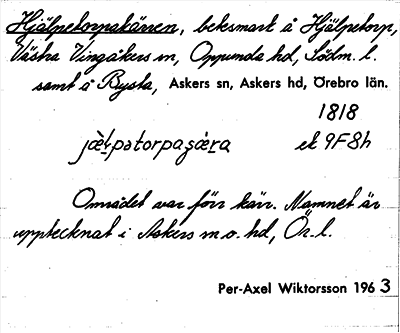 Hjälpetorpakärren, beksmark å Hjälpetorp,
Västra Vingåkers sn, Oppunda hd, Södm. l.
samt å Bysta, Askers sn, Askers hd, Örebro län.
1818
ek 9F8h
Området var förr kärr. Namnet är
upptecknat i Askers sn o. hd, Ör. l.
Per-Axel Wiktorsson 1963